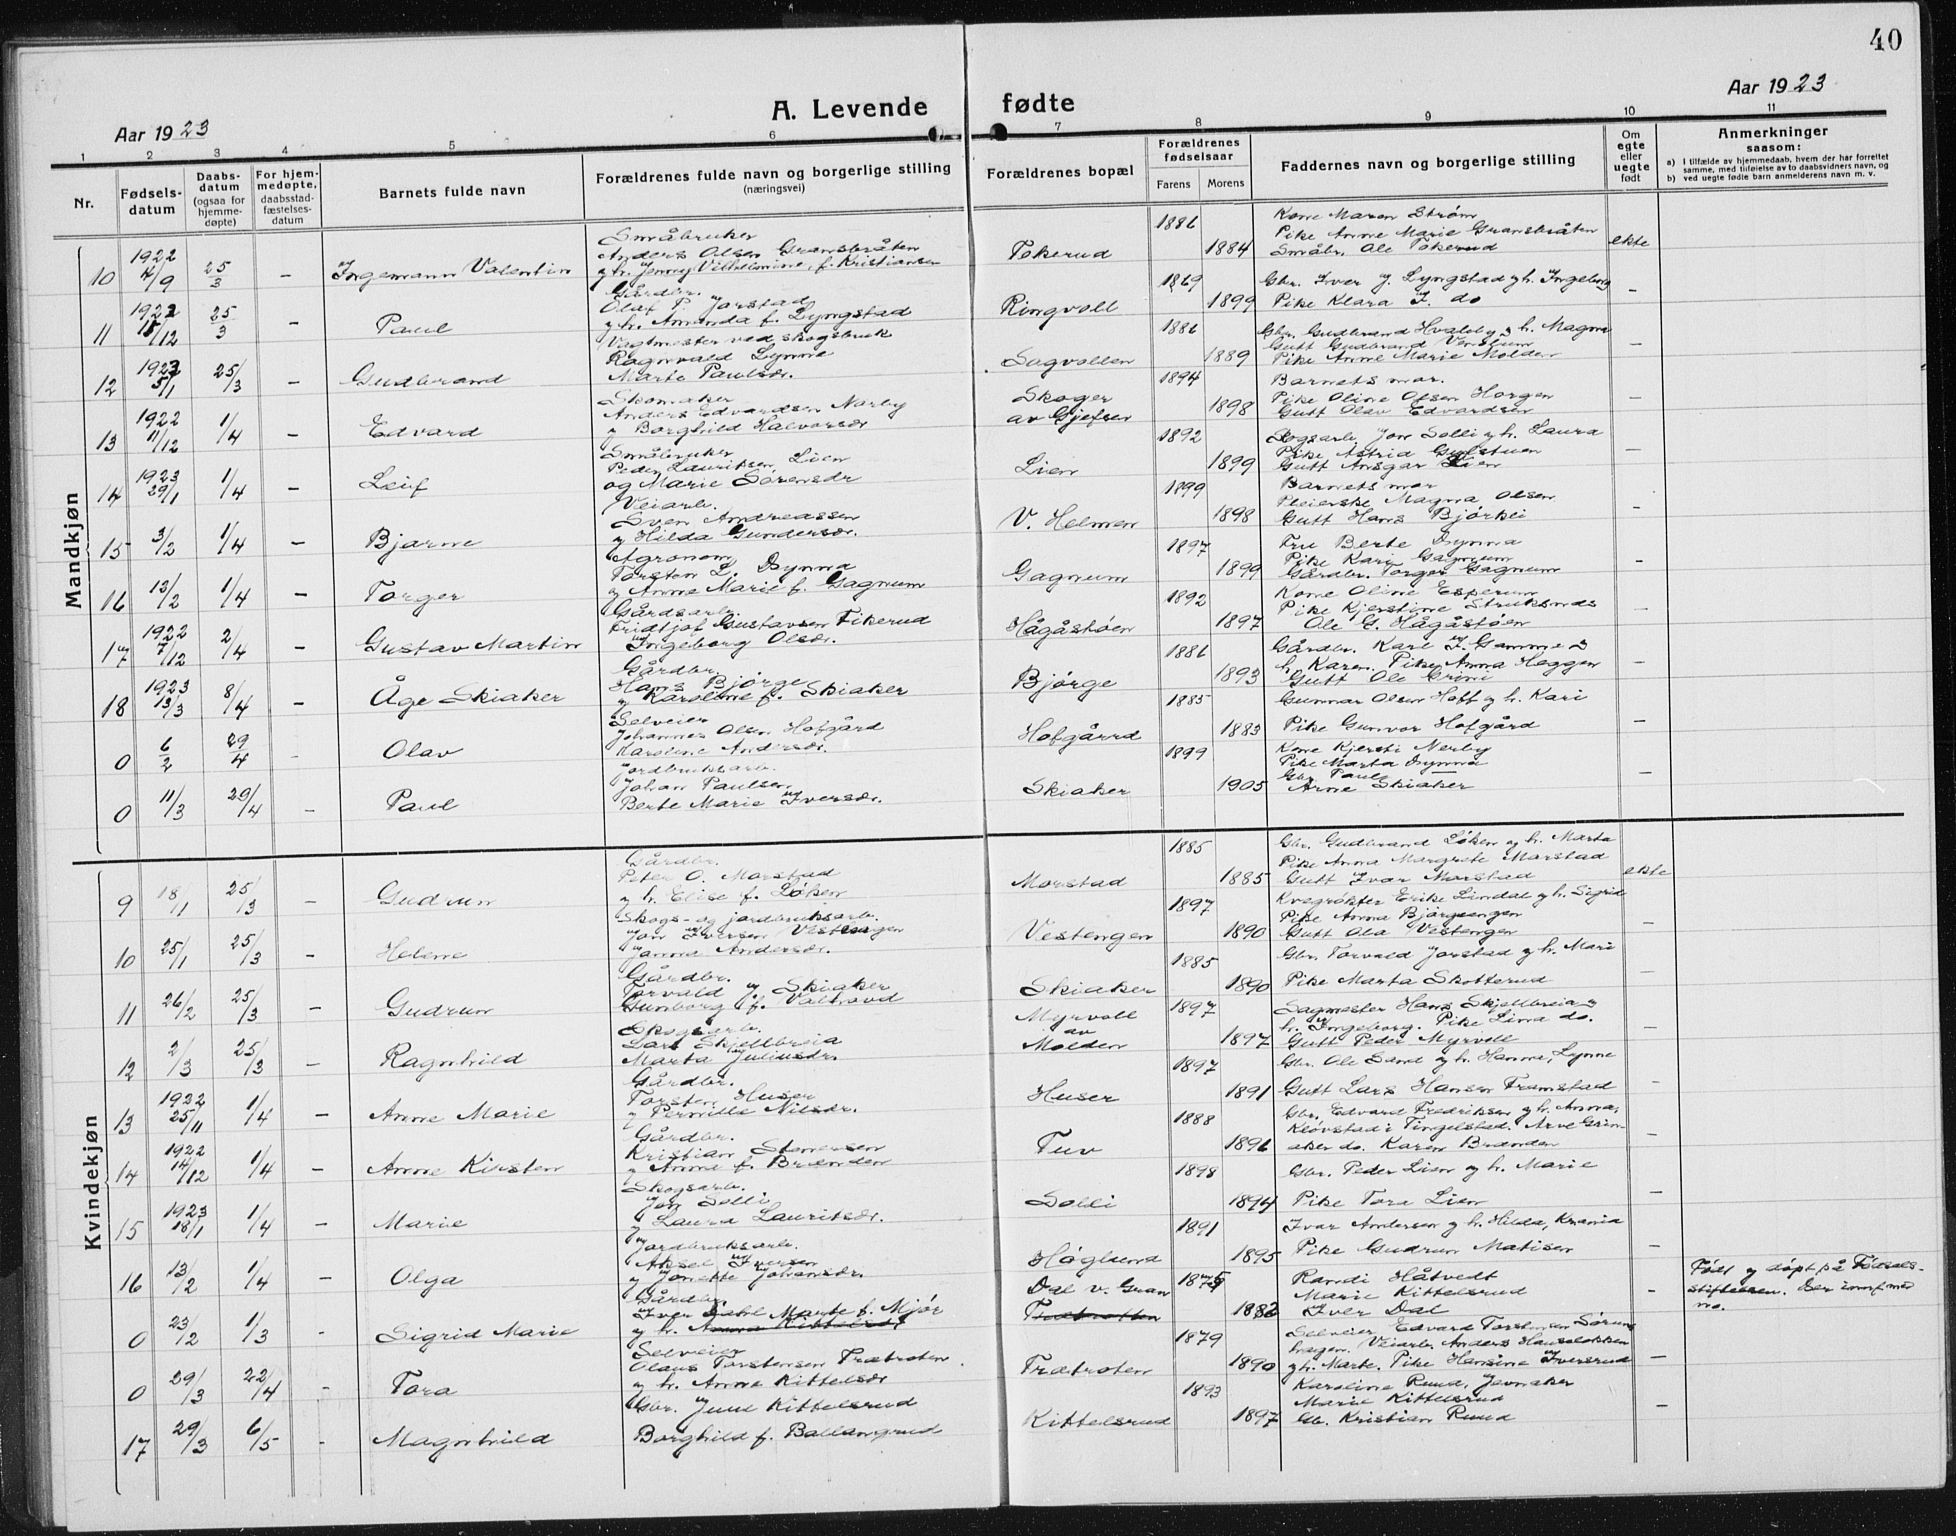 40
Aar 1923
A. Levende
fødte
Aar 1923
1 2 3 4 5 6 7 8 9 10 11
Nr.
Fødsels-
datum
Daabs-
datum
(ogsaa for
hjemme-
døpte)
For hjem-
medøpte,
daabsstad-
fæstelses-
datum
Barnets fulde navn
Forældrenes fulde navn og borgerlige stilling
(næringsvei)
Forældrenes bopæl
Forældrenes
fødselsaar
Farens
Morens
Faddernes navn og borgerlige stilling
Om
egte
eller
uegte
født
Anmerkninger
saasom:
a) I tilfælde av hjemmedaab, hvem der har forrettet
samme, med tilføielse av to daabsvidners navn, og
b) ved uegte fødte barn anmelderens navn m. v.
Mandkjøn
10 1922 4/9 25/3 – Ingemann Valentin
Småbruker
Anders Olsen Gransbråten
og h. Jenny Vilhelmine, f. Kristiansen
Tokerud 1886 1884
Kone Maren Strøm
Pike Anne Marie Gransbråten
Småbr. Ole Tokerud
ekte
11 1922 15/12 25/3 – Paul
Gårdbr.
Olaf P. Jorstad
og h. Amanda f. Lyngstad
Ringvoll 1869 1899
Gbr. Iver J. Lyngstad og h. Ingeborg
Pike Klara I. do –
12 1923 5/1 25/3 – Gudbrand
Vagtmester ved skogsbruk
Ragnvald Lynne
Marte Paulsdr.
Sagvollen 1886 1889
Gbr. Gudbrand Hvaleby og h. Magna
Gutt Gudbrand
Pike Anne Marie Molden –
13 1922 11/12 1/4 – Edvard
Skomaker
Anders Edvardsen Nerby
og Borghild Halvorsdr
Skoger
av Gjefsen 1894 1898
Barnets mor.
Pike Oline Olsen Horgen
Gutt Olav Edvardsen –
14 1923 29/1 1/4 – Leif
Småbruker
Peder Lauritsen Lien
og Marie Sørensdr
Lien 1892 1899
Skogsarb. Jon Solli og h. Laura
Pike Astrid Gulstuen
Gutt Ansgar Lien –
15 3/2 1/4 – Bjarne
Veiarb.
Sven Andreassen
og Hilda Gundersdr.
V. Helmen 1899 1898
Barnets mor
Pleierske Magna Olsen
Gutt Hans Bjørkli –
16 13/2 1/4 – Torger
Agronom
Torsten L. Dynna
og Anne Marie f. Gagnum
Gagnum 1897 1899
Fru Berte Dynna
Pike Kari Gagnum
Gårdbr. Torger Gagnum –
17 1922 7/12 2/4 – Gustav Martin
Gårdsarb.
Fridtjof Gustavsen Fikerud
Ingeborg Olsdr.
Hågåstøen 1892 1897
Kone Oline Esperum
Pike Kjerstine Struksnæs
Ole G. Hågåstøen –
18 1923 13/3 8/4 – Åge Skiaker
Gårdbr.
Hans Bjørge
og Karoline f. Skiaker
Bjørge 1886 1893
Gårdbr. Karl I. Gamme og
h. Karen. Pike Anna Heggen
Gutt Ole Grini –
0 6/2 29/4 – Olav
Selveier
Johannes Olsen Hofgård
Karoline Andersdr.
Hofgård 1885 1883
Gunnar Olsen Hoff og h. Kari
Pike Gunvor Hofgård –
0 11/3 29/4 – Paul
Jordbruksarb.
Johan Paulsen
Berte Marie Iversdr.
Skiaker 1899 1905
Kone Kjersti Nerby
Pike Marta Dynna
Gbr. Paul
Arne Skiaker –
Kvindekjøn
9 18/1 25/3 – Gudrun
Gårdbr.
Peter O. Morstad
og h. Elise f. Løken
Morstad 1885 1885
Gbr. Gudbrand Løken og h. Marta
Pike Anna Margrete Morstad
Gutt Ivar Morstad
ekte
10 25/1 25/3 – Helene
Skogs- og jordbruksarb.
Jon Iversen Vestengen
Janna Andersdr.
Vestengen 1897 1890
Kvegrøkter Erik Lindal og h. Sigrid
Pike Anna Bjørgeengen
Gutt Ola Vestengen –
11 26/2 25/3 – Gudrun
Gårdbr.
Torvald J. Skiaker
Gunborg f. Valbravd
Skiaker 1885 1890
Gbr. Torvald Jorstad og h. Mari
Pike Marta Skotterud –
12 2/3 25/3 – Ragnhild
Skogsarb.
Lars Skjellbreia
Marta Juliusdr.
Myrvoll
av
Molden 1897 1897
Sagmester Hans Skjellbreia og
h. Ingeborg. Pike Lina do.
Gutt Peder Myrvoll –
13 1922 25/11 1/4 – Anne Marie
Gårdbr.
Torsten Huser
og Pernille Nilsdr.
Huser 1897 1891
Gbr. Ole Sand og h. Hanna, Lynne
Gutt Lars Hansen Framstad –
14 1922 14/12 1/4 – Anne Kirsten
Gårdbr.
Kristian Stenersen
og Anne f. Brænden
Tuv 1888 1896
Gbr. Edvard Fredriksen og h. Anna,
Kløvstad i Tingelstad. Arve Grin-
aker do. Karen Brænden –
15 1923 18/1 1/4 – Marie
Skogsarb.
Jon Solli
og Laura Lauritsdr.
Solli 1898 1894
Gbr. Peder Lien og h. Marie
Pike Tora Lien –
16 13/2 1/4 – Olga
Jordbruksarb.
Aksel Iversen
og Jonette Johansdr.
Høglund 1891 1895
Ivar Andersen og h. Hilda,
Pike Gudrun Matisen –
0 23/2 1/3 – Sigrid Marie
Gårdbr.
Iver Dahl Marte f. Mjør
og h. Anna Kittelsdr
Dal v. Gran
Trætroten 1875 1882
Randi Håtvedt
Marie Kittelsrud
Iver Dal –
Født og døpt på Fødsels-
stiftelsen.
no.
0 29/3 22/4 – Tora
Selveier
Olaus Torstensen Trætroten
og h. Anne Kittelsdr
Trætroten 1879 1890
Selveier Edvard Torstensen Sørum-
hagen. Veiarb. Anders Hauslokken
og h. Marte. Pike Hansine Iversrud –
17 29/3 6/5 – Magnhild
Gbr. Juul Kittelsrud
Borghild f. Ballangrud
Kittelsrud 1893 1897
Karoline Ruud, Jevnaker
Marie Kittelsrud
Gb. Kristian Ruud –